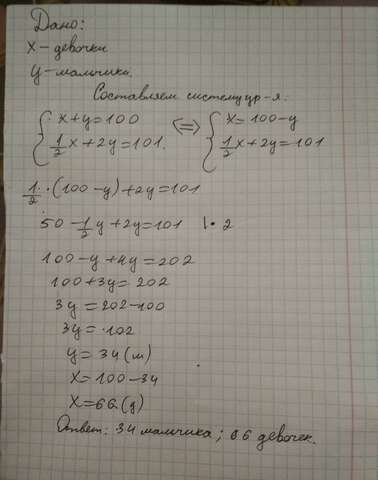 Дано:
x - девочки
y - мальчики.
Составляем систему ур-я.
{ x+y=100 <=> { x=100-y
{ 1/2x+2y=101. { 1/2x+2y=101
1/2·(100-y)+2y=101
50-1/2y+2y=101 |·2
100-y+4y=202
100+3y=202
3y=202-100
3y=102
y=34(м)
x=100-34
x=66(д)
Ответ: 34 мальчика; 66 девочек.